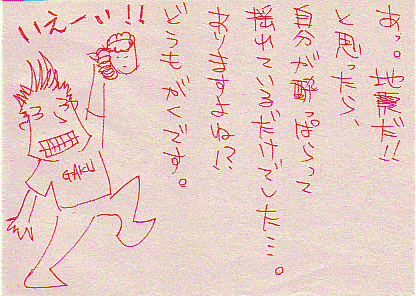 あっ。地震だ!!
と思ったら、
自分が酔っぱらって
揺れているだけでした…。
ありますよね!?
どうもがくです。
いえーい!!
GAKU